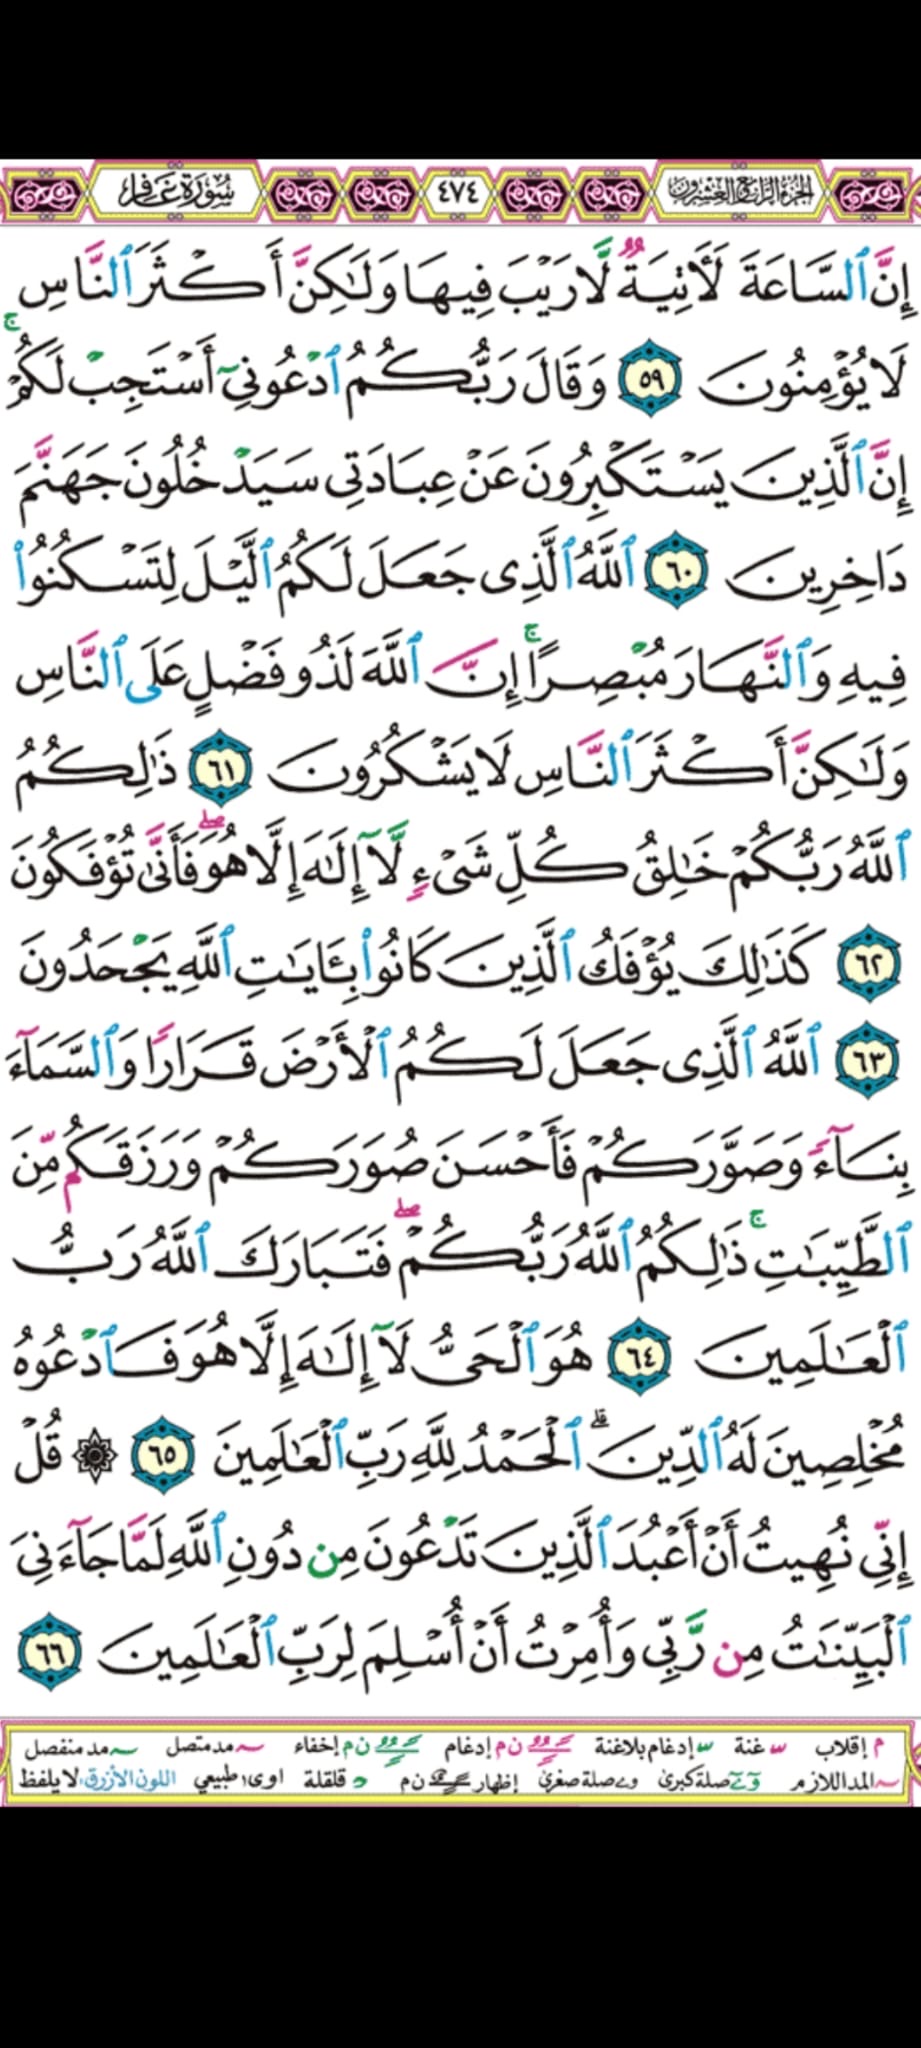 سُورَةُ غَافِر ٤٧٤ الجُزءُ الرَّابِعُ وَالعِشْرُونَ
إِنَّ ٱلسَّاعَةَ لَـَٔاتِيَةٌ لَّا رَيْبَ فِيهَا وَلَـٰكِنَّ أَكْثَرَ ٱلنَّاسِ
لَا يُؤْمِنُونَ ٥٩ وَقَالَ رَبُّكُمُ ٱدْعُونِىٓ أَسْتَجِبْ لَكُمْ ۚ
إِنَّ ٱلَّذِينَ يَسْتَكْبِرُونَ عَنْ عِبَادَتِى سَيَدْخُلُونَ جَهَنَّمَ
دَاخِرِينَ ٦٠ ٱللَّهُ ٱلَّذِى جَعَلَ لَكُمُ ٱلَّيْلَ لِتَسْكُنُوا۟
فِيهِ وَٱلنَّهَارَ مُبْصِرًا ۚ إِنَّ ٱللَّهَ لَذُو فَضْلٍ عَلَى ٱلنَّاسِ
وَلَـٰكِنَّ أَكْثَرَ ٱلنَّاسِ لَا يَشْكُرُونَ ٦١ ذَٰلِكُمُ
ٱللَّهُ رَبُّكُمْ خَـٰلِقُ كُلِّ شَىْءٍ لَّآ إِلَـٰهَ إِلَّا هُوَ ۖ فَأَنَّىٰ تُؤْفَكُونَ
٦٢ كَذَٰلِكَ يُؤْفَكُ ٱلَّذِينَ كَانُوا۟ بِـَٔايَـٰتِ ٱللَّهِ يَجْحَدُونَ
٦٣ ٱللَّهُ ٱلَّذِى جَعَلَ لَكُمُ ٱلْأَرْضَ قَرَارًا وَٱلسَّمَآءَ
بِنَآءً وَصَوَّرَكُمْ فَأَحْسَنَ صُوَرَكُمْ وَرَزَقَكُم مِّنَ
ٱلطَّيِّبَـٰتِ ۚ ذَٰلِكُمُ ٱللَّهُ رَبُّكُمْ ۖ فَتَبَارَكَ ٱللَّهُ رَبُّ
ٱلْعَـٰلَمِينَ ٦٤ هُوَ ٱلْحَىُّ لَآ إِلَـٰهَ إِلَّا هُوَ فَٱدْعُوهُ
مُخْلِصِينَ لَهُ ٱلدِّينَ ۗ ٱلْحَمْدُ لِلَّهِ رَبِّ ٱلْعَـٰلَمِينَ ٦٥ ۞ قُلْ
إِنِّى نُهِيتُ أَنْ أَعْبُدَ ٱلَّذِينَ تَدْعُونَ مِن دُونِ ٱللَّهِ لَمَّا جَآءَنِىَ
ٱلْبَيِّنَـٰتُ مِن رَّبِّى وَأُمِرْتُ أَنْ أُسْلِمَ لِرَبِّ ٱلْعَـٰلَمِينَ ٦٦
م إقلاب غنة إدغام بلاغنة ن م إدغام ن م إخفاء مد متصل مد منفصل
المد اللازم صلة كبرى صلة صغرى إظهار ن م قلقلة اوى، طبيعي اللون الأزرق، لا يلفظ